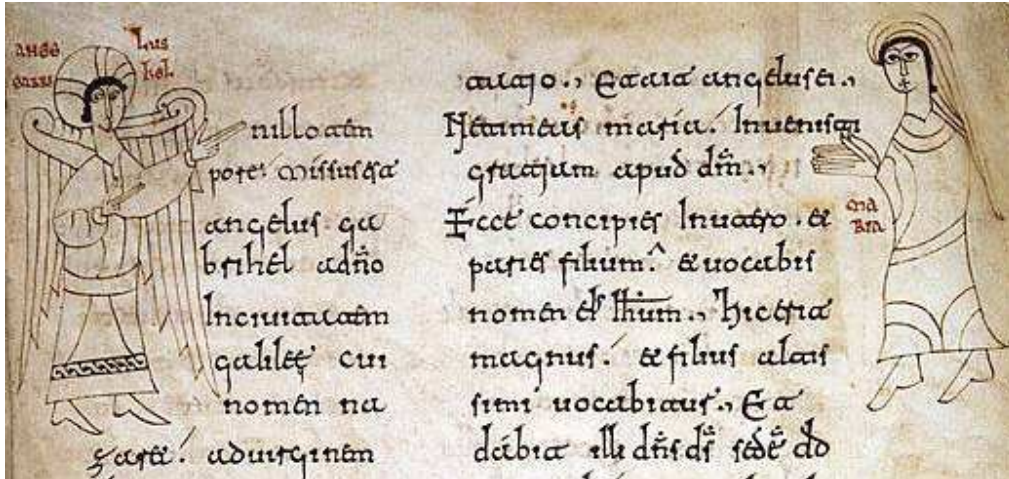 ANGE LUS
GABRI HEL
n illo tem
pore missus est
angelus ga
brihel a dno
In civitatem
galileę cui
nomen na
zaret ad virginem
Et ait angelus ei.,
Ne timeas maria. Invenisti
gratiam apud dm.,
Ecce concipies In utero. et
paries filium. et vocabis
nomen eius Ihum., hic erit
magnus. et filius altis
simi vocabitur., Et
dabit illi dns ds sede dd
MA
RIA